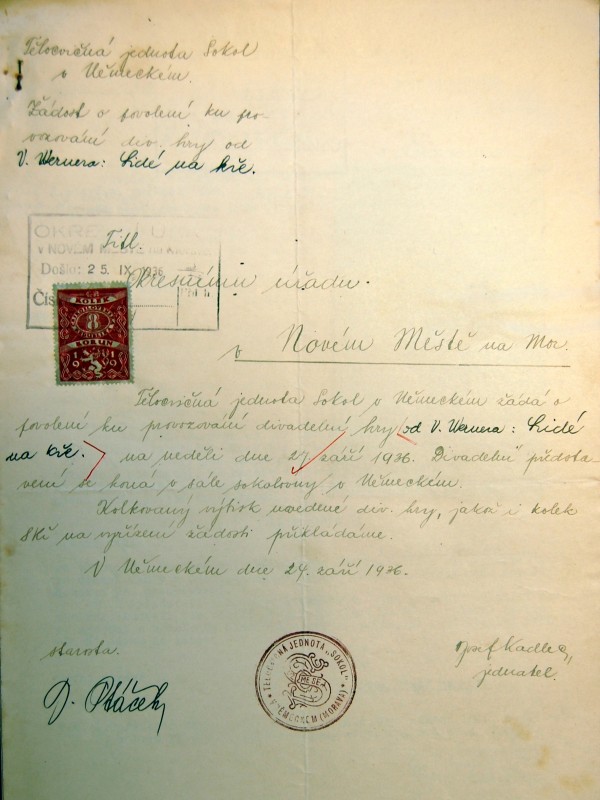 Tělocvičná jednota Sokol
v Německém.
Žádost o povolení ku pro-
vozování div. hry od
V. Wernera: Lidé na kře.
Titl.
V NOVÉM MĚSTĚ NA MORAVĚ
Došlo: 25. IX. 1936
Okresnímu úřadu.
Čís.
KOLEK
8
KORUN
v Novém Městě na Mor.
Tělocvičná jednota Sokol v Německém žádá o
povolení ku provozování divadelní hry od V. Wernera: Lidé
na kře. na neděli dne 27 září 1936. Divadelní předsta-
vení se koná v sále sokolovny v Německém.
Kolkovaný výtisk uvedené div. hry, jakož i kolek
8Kč na vyřízení žádosti přikládáme.
V Německém dne 24. září 1936.
starosta.
Josef Kadlec
jednatel.
TĚLOCVIČNÁ JEDNOTA „SOKOL“
V NĚMECKÉM (MORAVA)
Ptáček